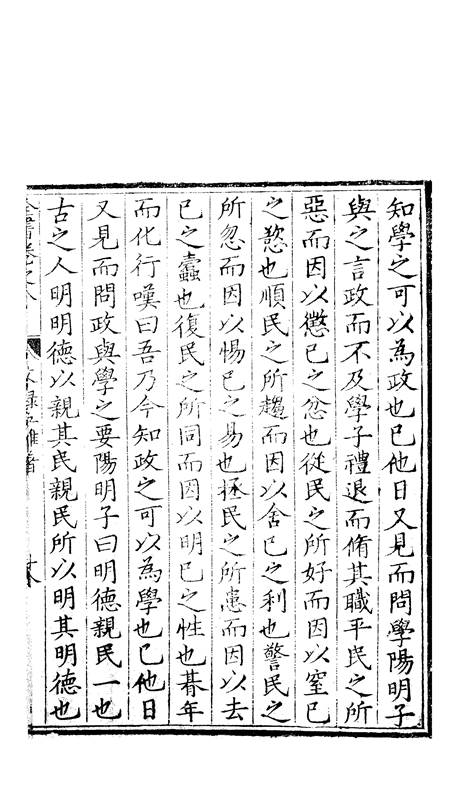 知學之可以為政也已他日又見而問學陽明子
與之言政而不及學子禮退而脩其職平民之所
惡而因以懲已之忿也從民之所好而因以窒已
之慾也順民之所趨而因以舍已之利也警民之
所忽而因以惕已之易也拯民之所患而因以去
已之蠹也復民之所同而因以明已之性也朞年
而化行嘆曰吾乃今知政之可以為學也已他日
又見而問政與學之要陽明子曰明德親民一也
古之人明明德以親其民親民所以明其明德也